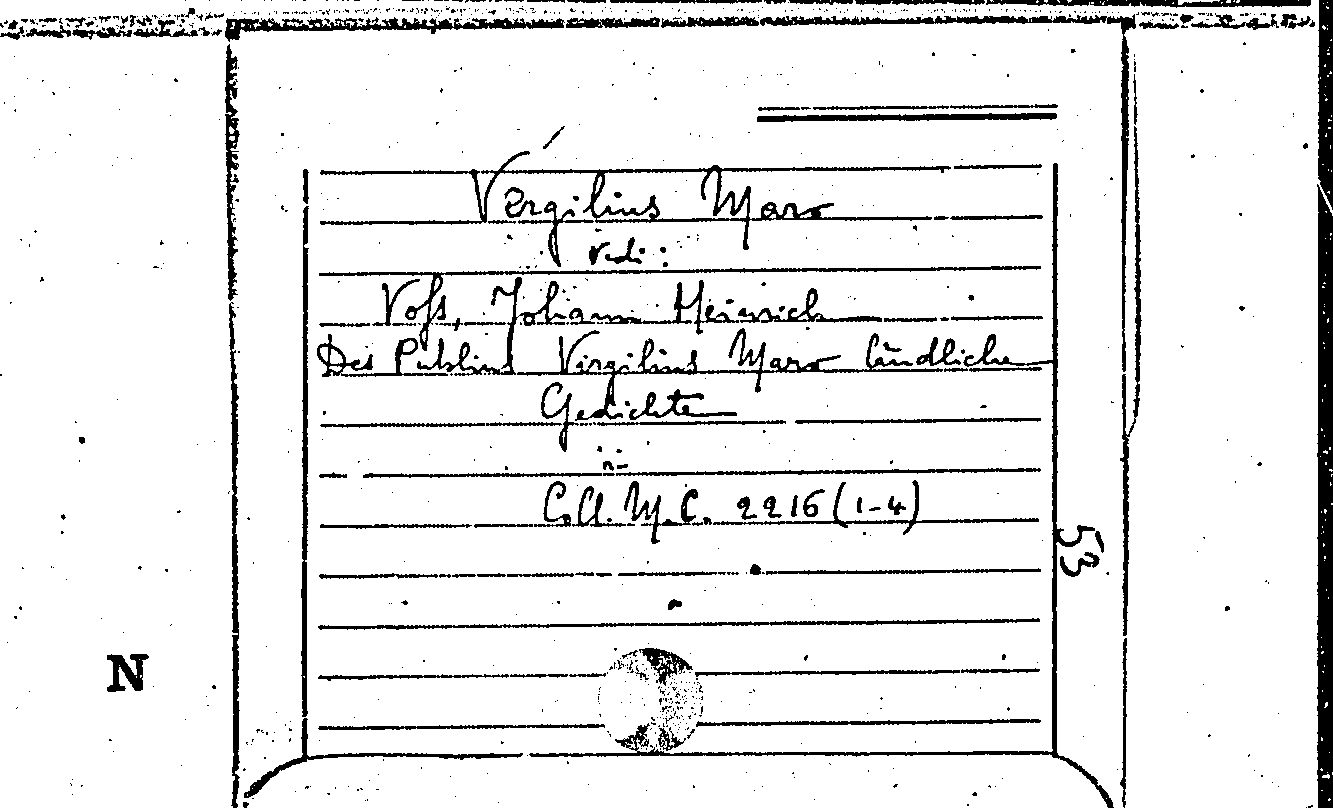 Vergilius Maro
vedi:
Voss, Johann Heinrich
Des Publius Virgilius Maro ländliche
Gedichte
in
Coll. M.C. 2216 (1-4)
53
N